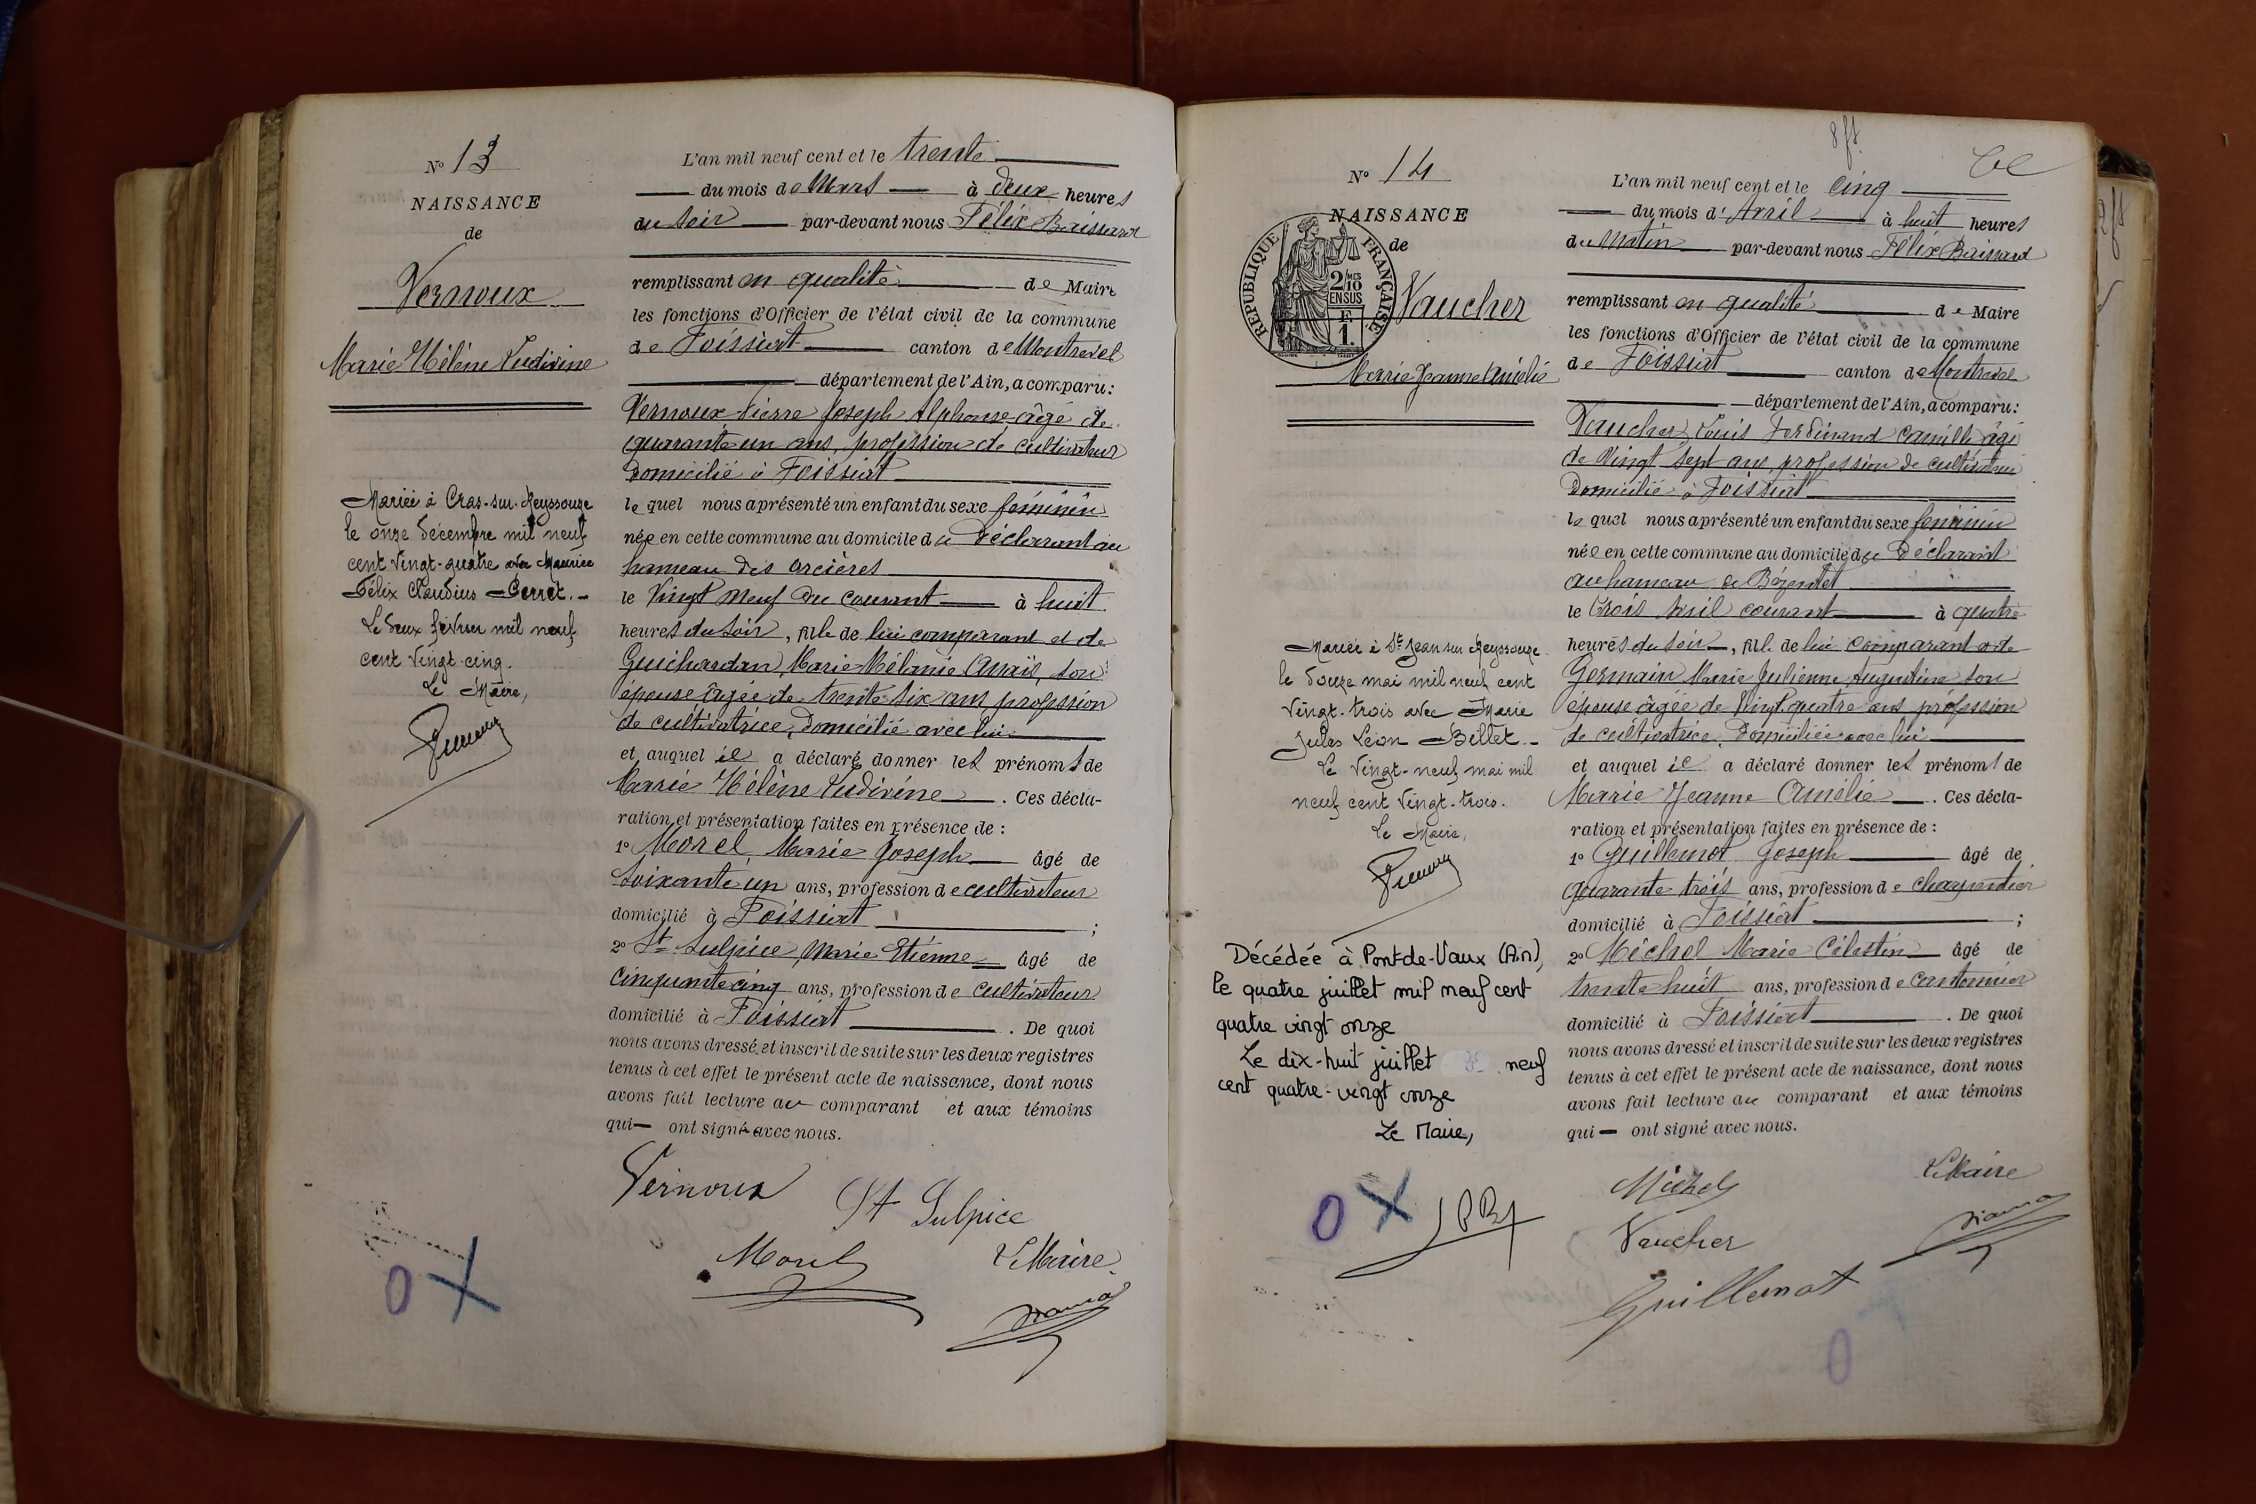 N° 13
NAISSANCE
de
Vernoux
Marie Hélène Ludivine
Mariée à Cras-sur-Reyssouze
le onze décembre mil neuf
cent vingt-quatre avec Maurice
Félix Claudius Perret. -
Le deux février mil neuf
cent vingt-cinq.
Le Maire,
L'an mil neuf cent et le trente
du mois de Mars à deux heures
du soir par-devant nous Félix Baissard
remplissant en qualité de Maire
les fonctions d'Officier de l'état civil de la commune
de Foissiat canton de Montrevel
département de l'Ain, a comparu:
Vernoux Pierre Joseph Alphonse âgé de
quarante un ans, profession de cultivateur
domicilié à Foissiat
lequel nous a présenté un enfant du sexe féminin
née en cette commune au domicile du déclarant au
hameau des Orcières
le vingt neuf du courant à huit
heures du soir, fille de lui comparant et de
Guichardan, Marie Mélanie Anaïs, son
épouse âgée de trente six ans, profession
de cultivatrice, domicilié avec lui
et auquel il a déclaré donner les prénoms de
Marie Hélène Ludivine. Ces décla-
ration et présentation faites en présence de :
1° Morel, Marie Joseph âgé de
soixante un ans, profession de cultivateur
domicilié à Foissiat ;
2° St Sulpice, Marie Etienne âgé de
cinquante cinq ans, profession de cultivateur
domicilié à Foissiat. De quoi
nous avons dressé et inscrit de suite sur les deux registres
tenus à cet effet le présent acte de naissance, dont nous
avons fait lecture au comparant et aux témoins
qui — ont signé avec nous.
Vernoux
St Sulpice
Morel
Le Maire
O X
8 ft
N° 14
NAISSANCE
de
RÉPUBLIQUE FRANÇAISE
2/10
EN SUS
F.
1.
Vaucher
Marie Jeanne Amélie
Mariée à St Jean sur Reyssouze
le douze mai mil neuf cent
vingt-trois avec Marie
Jules Léon Billet. -
Le vingt-neuf mai mil
neuf cent vingt-trois.
Le Maire,
Décédée à Pont-de-Vaux (Ain),
le quatre juillet mil neuf cent
quatre vingt onze
Le dix-huit juillet neuf
cent quatre-vingt onze
Le Maire,
O X
L'an mil neuf cent et le cinq
du mois d'Avril à huit heures
du matin par-devant nous Félix Baissard
remplissant en qualité de Maire
les fonctions d'Officier de l'état civil de la commune
de Foissiat canton de Montrevel
département de l'Ain, a comparu:
Vaucher, Louis Ferdinand Camille âgé
de vingt sept ans, profession de cultivateur
domicilié à Foissiat
lequel nous a présenté un enfant du sexe féminin
née en cette commune au domicile du déclarant
au hameau de Bézentet
le trois avril courant à quatre
heures du soir, fille de lui comparant et de
Germain Marie Julienne Augustine son
épouse âgée de vingt quatre ans profession
de cultivatrice, domiciliée avec lui
et auquel il a déclaré donner les prénoms de
Marie Jeanne Amélie. Ces décla-
ration et présentation faites en présence de :
1° Guillemot Joseph âgé de
quarante trois ans, profession de charpentier
domicilié à Foissiat ;
2° Michel Marie Célestin âgé de
trente huit ans, profession de cantonnier
domicilié à Foissiat. De quoi
nous avons dressé et inscrit de suite sur les deux registres
tenus à cet effet le présent acte de naissance, dont nous
avons fait lecture au comparant et aux témoins
qui — ont signé avec nous.
Michel
Le Maire
Vaucher
Guillemot
O